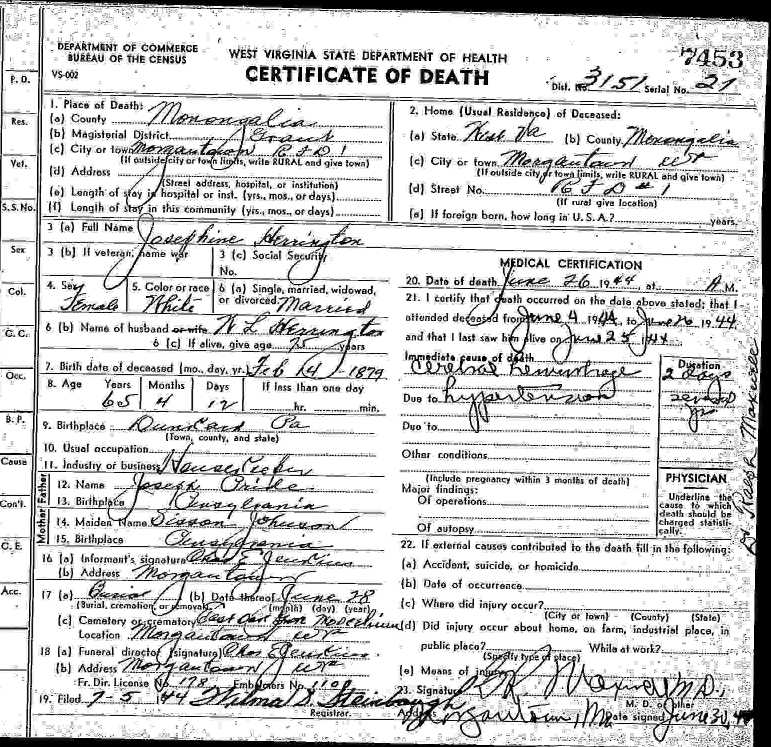 DEPARTMENT OF COMMERCE
BUREAU OF THE CENSUS
VS-002
WEST VIRGINIA STATE DEPARTMENT OF HEALTH
CERTIFICATE OF DEATH
7453
Dist. No. 3151 Serial No. 27
P. D.
Res.
Vet.
S. S. No.
Sex
Col.
C. C.
Occ.
B. P.
Cause
Con't.
C. E.
Acc.
1. Place of Death:
(a) County Monongalia
(b) Magisterial District Grant
(c) City or town Morgantown RFD 1
(If outside city or town limits, write RURAL and give town)
(d) Address
(Street address, hospital, or institution)
(e) Length of stay in hospital or inst. (yrs., mos., or days)
(f) Length of stay in this community (yrs., mos., or days)
2. Home (Usual Residence) of Deceased:
(a) State West Va (b) County Monongalia
(c) City or town Morgantown
(If outside city or town limits, write RURAL and give town)
(d) Street No. RFD #1
(If rural give location)
(e) If foreign born, how long in U. S. A.? years.
3 (a) Full Name Josephine Herrington
3 (b) If veteran, name war
3 (c) Social Security No.
4. Sex Female
5. Color or race White
6 (a) Single, married, widowed, or divorced. Married
6 (b) Name of husband or wife W L Herrington
6 (c) If alive, give age 75 years
7. Birth date of deceased (mo., day, yr.) Feb 14 - 1879
8. Age Years Months Days If less than one day
65 4 12 hr. min.
9. Birthplace Pa
(Town, county, and state)
10. Usual occupation
11. Industry of business
Father
12. Name Joseph
13. Birthplace Pensylvania
Mother
14. Maiden Name Johnson
15. Birthplace Pensylvania
16 (a) Informant's signature Chas E Jenkins
(b) Address Morgantown
17 (a) Burial (b) Date thereof June 28
(Burial, cremation, or removal) (month) (day) (year)
(c) Cemetery or crematory East Oak
Location Morgantown
18 (a) Funeral director (signature) Chas E Jenkins
(b) Address Morgantown
Fr. Dir. License No. 178 Embalmers No. 110
19. Filed 7-5 44 Wilma S. Steinbaugh
Registrar.
MEDICAL CERTIFICATION
20. Date of death June 26 1944, at A M.
21. I certify that death occurred on the date above stated; that I
attended deceased from June 4 1944, to June 26 1944
and that I last saw him alive on June 25 1944
Immediate cause of death
Cerebral hemorrhage
Duration
2 days
Due to hypertension several yrs
Due to
Other conditions
(Include pregnancy within 3 months of death)
Major findings:
Of operations
Of autopsy
PHYSICIAN
Underline the cause to which death should be charged statistically.
22. If external causes contributed to the death fill in the following:
(a) Accident, suicide, or homicide
(b) Date of occurrence
(c) Where did injury occur?
(City or town) (County) (State)
(d) Did injury occur about home, on farm, industrial place, in
public place? While at work?
(Specify type of place)
(e) Means of injury
23. Signature Maxwell M.D.
M. D. or other
Address Morgantown, Date signed June 30, 44